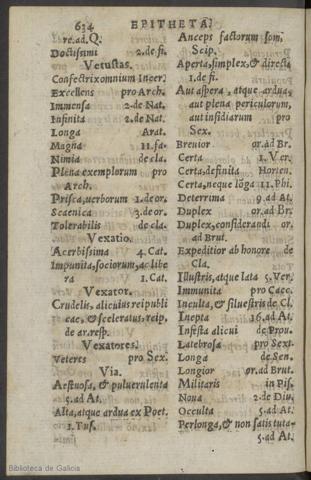 634 EPITHETA.
re.ad.Q.
Doctissimi 2.de fi.
Vetustas.
Confectrix omnium Incer.
Excellens pro Arch.
Immensa 2.de Nat.
Infinita 2.de Nat.
Longa Arat.
Magna 11.fa.
Nimia de cla.
Plena exemplorum pro
Arch.
Prisca, uerborum 1.de or.
Scaenica 3.de or.
Tolerabilis de cla.
Vexatio.
Acerbissima 4.Cat.
Impunita, sociorum, ac libe
ra 1.Cat.
Vexator.
Crudelis, alicuius reipubli
cae, & sceleratus, reip.
de ar.resp.
Vexatores.
Veteres pro Sex.
Via.
Aestuosa, & puluerulenta
5.ad At.
Alta, atque ardua ex Poet.
1.Tus.
Anceps factorum som.
Scip.
Aperta, simplex, & directa
1.de fi.
Aut aspera, atque ardua,
aut plena periculorum,
aut insidiarum pro
Sex.
Breuior or.ad Br.
Certa 1.Ver.
Certa, definita Horten.
Certa, neque lõga 11.Phi.
Deterrima 9.ad At.
Duplex or.ad Br.
Duplex, considerandi or.
ad Brut.
Expeditior ad honore de
Cla.
Illustris, atque lata 5.Ver.
Immunita pro Caec.
Inculta, & siluestris de Cl.
Inepta 16.ad At.
Infesta alicui de Prou.
Latebrosa pro Sext.
Longa de Sen.
Longior or.ad Brut.
Militaris in Pis.
Noua 2.de Diu.
Occulta 5.ad At.
Perlonga, & non satis tuta
5.ad At.
Biblioteca de Galicia